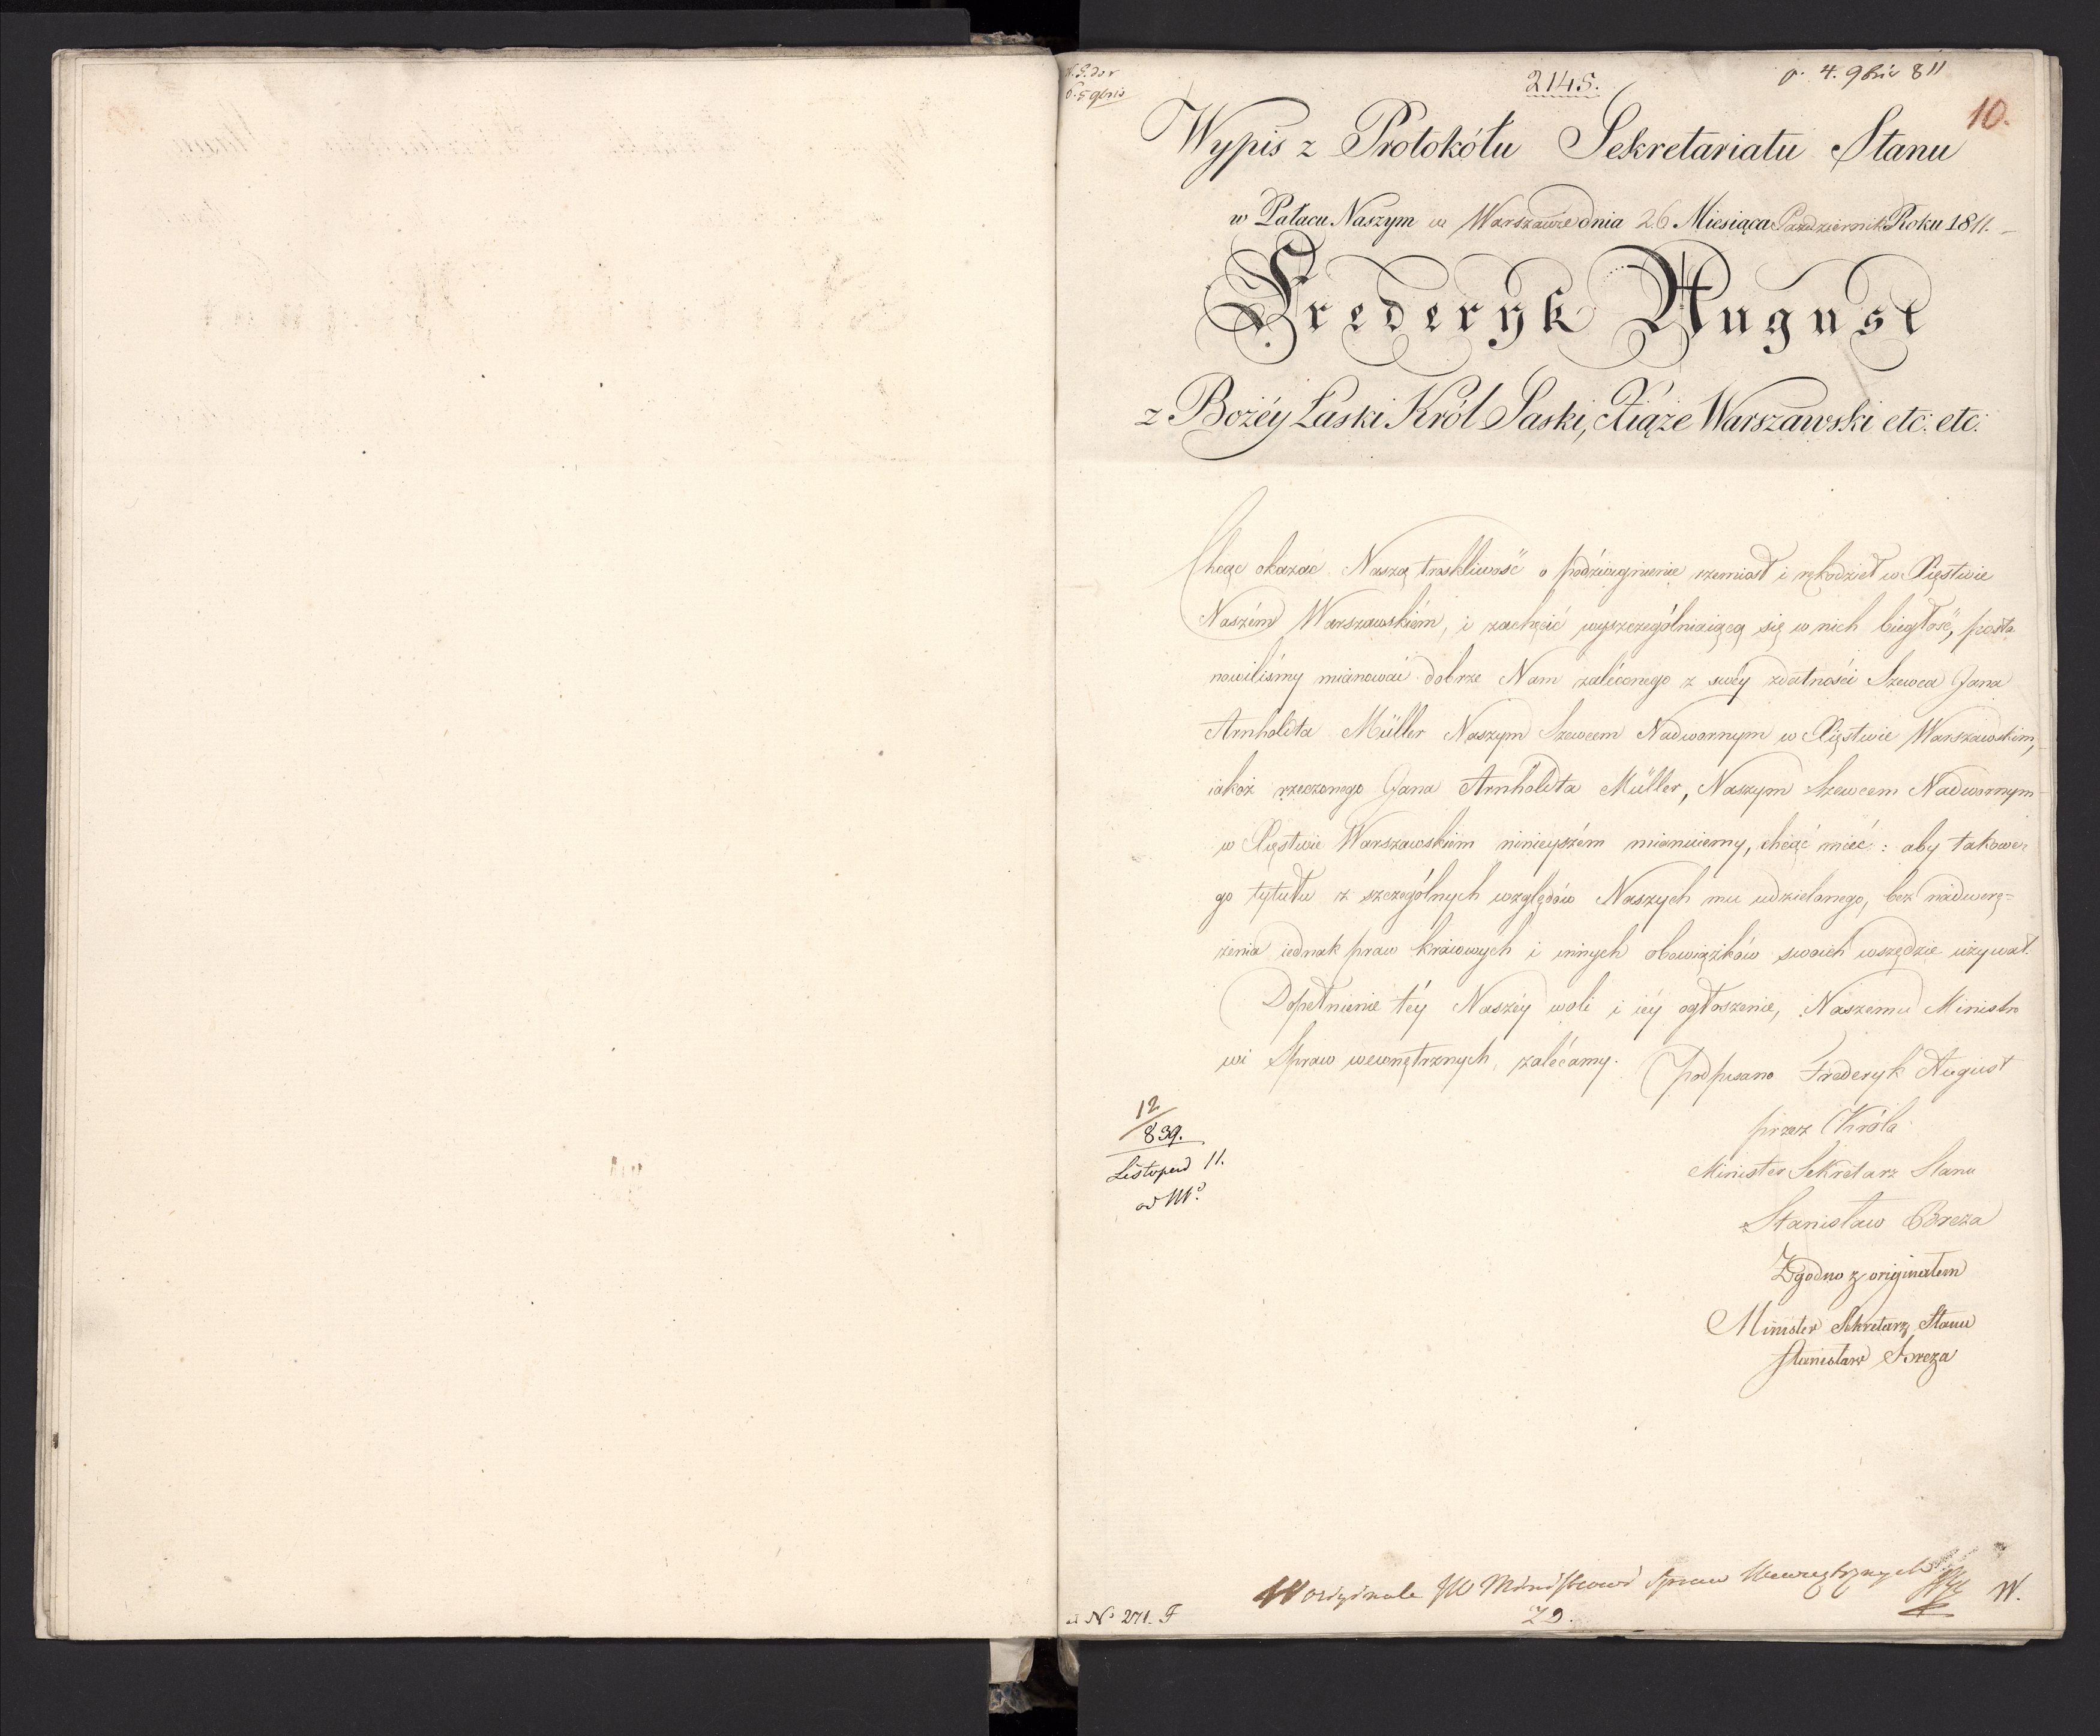 2145.
4. 9bris 811
10.
Wypis z Protokółu Sekretariatu Stanu
w Pałacu Naszym w Warszawie dnia 26 Miesiąca Październik Roku 1811.
Frederyk August
z Bożéy Łaski Król Saski, Xiąże Warszawski etc: etc:
Chcąc okazać Naszą troskliwość o podźwignienie rzemiosł i rękodzieł w Xięstwie
Naszém Warszawskiém, i zachęcić wyszczególniaiącą się w nich biegłość, posta
nowiliśmy mianować dobrze Nam zaléconego z swéy zdatnośći Szewca Jana
Arnholdta Müller Naszym Szewcem Nadwornym w Xięstwie Warszawskim,
iakoż rzeczonego Jana Arnholdta Müller, Naszym Szewcem Nadwornym
w Xięstwie Warszawskiém ninieyszém mianuiemy, chcąc mieć: aby takowe=
go tytułu z szczególnych względów Naszych mu udzielonego, bez nadwerę=
żenia iednak praw kraiowych i innych obowiązków swoich wszędzie używał.
Dopełnienie téy Naszéy woli i iéy ogłoszenie, Naszemu Ministro
wi Spraw wewnętrznych, zalécamy.
(podpisano Frederyk August
przez Króla
Minister Sekretarz Stanu
Stanisław Breza
Zgodno z originałem
Minister Sekretarz Stanu
Stanisław Breza
12
839.
Listopad 11.
W originale JW Ministrowi Spraw Wewnętrznych
W.
No 271. F